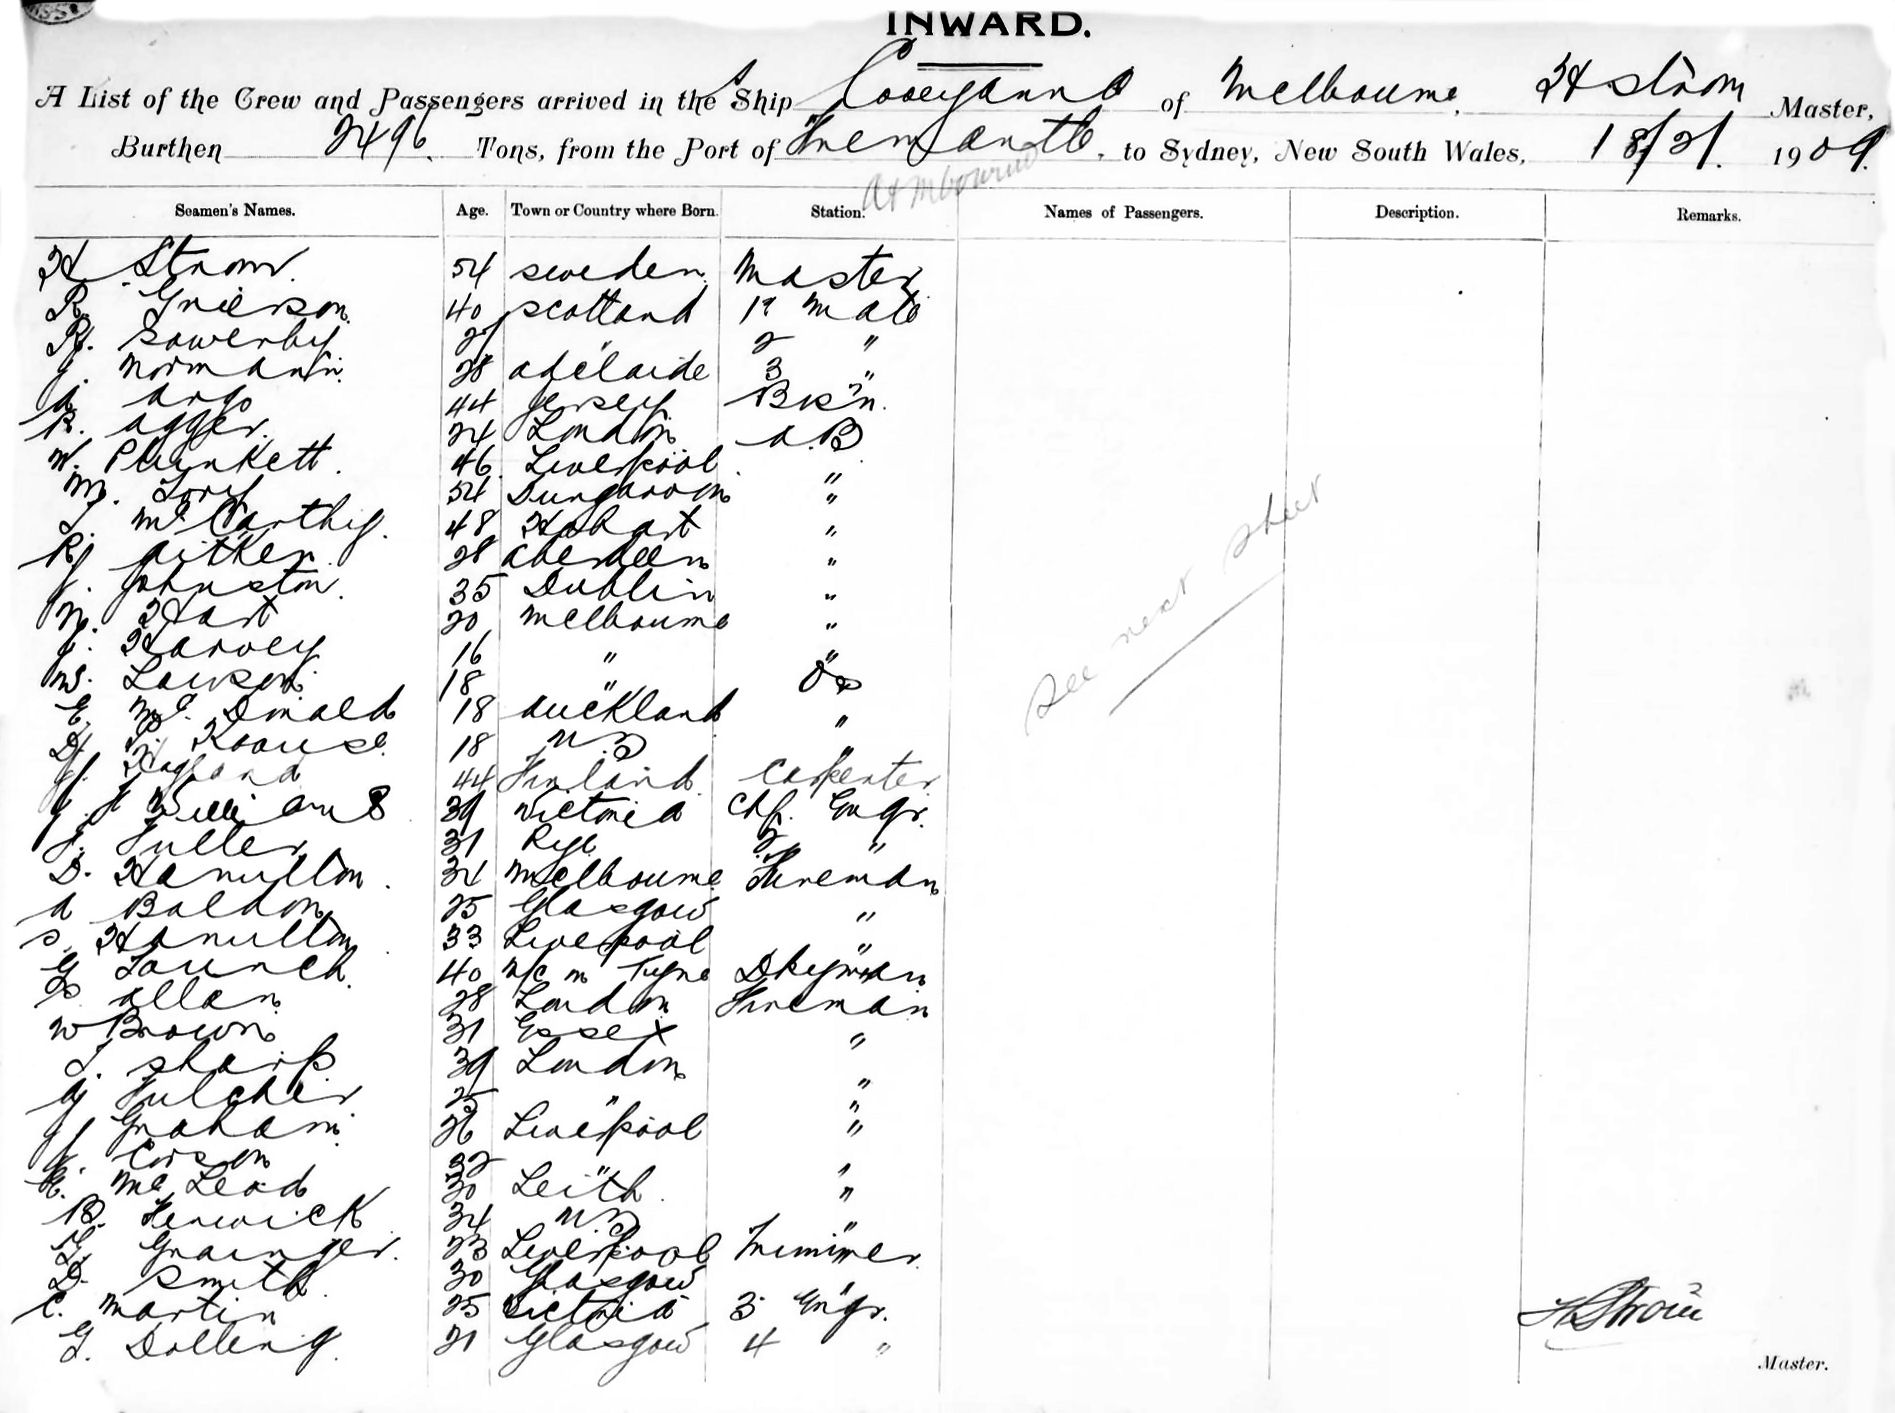 INWARD.
A List of the Crew and Passengers arrived in the S Ship Cooeyanna of Melbourne, H Strom Master,
Burthen 2496 Tons, from the Port of Fremantle, to Sydney, New South Wales, 18/2/ 1909.
at Mbourne
Seamen's Names. Age. Town or Country where Born. Station. Names of Passengers. Description. Remarks.
H Strom 54 Sweden Master
R. Grierson 40 Scotland 1st Mate
Sowerby " 2 "
J. Normann 28 Adelaide 3 "
A. Argo 44 Jersey Bos'n
R. Agger 24 London A.B
W. Plunkett 46 Liverpool "
M. 54 Dungarvon "
J. McCarthy 48 Hobart "
R. Aitken 28 Aberdeen "
J. Johnston 35 Dublin "
M. Hart 20 Melbourne "
J. Harvey 16 " "
W. Lawson 18 " OS
E. McDonald 18 Auckland "
Krouse 18 N.Z "
J. Hagland 44 Finland Carpenter
Williams 39 Victoria Chf. Engr.
J. Fuller 31 Rye 2 "
D. Hamilton 34 Melbourne Fireman
A Baldon 25 Glasgow "
S. Hamilton 33 Liverpool "
40 N/C on Tyne Dkeyman
Allan 28 London Fireman
W Brown 31 Essex "
J. Sharp 39 London "
Fulcher 25 " "
J Graham 26 Liverpool "
J. Corson 32 " "
McLeod 30 Leith "
B. Fenwick 34 N.Z "
Grainger 23 Liverpool Trimmer
D. Smith 30 Glasgow "
C. Martin 25 Victoria 3 Engr.
G. Dolling 21 Glasgow 4 "
See next sheet
H Strom
Master.